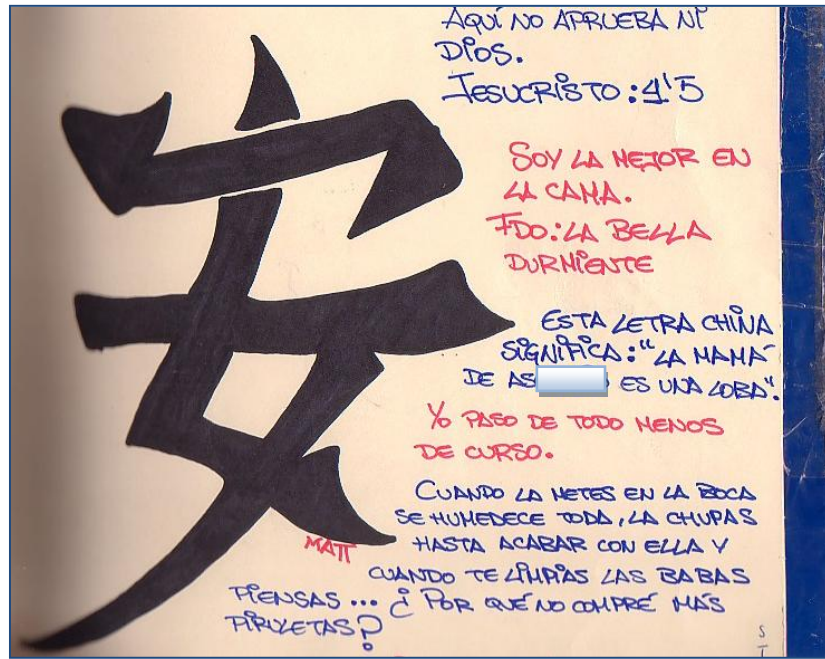 安
AQUÍ NO APRUEBA NI
DIOS.
JESUCRISTO: 4'5
SOY LA MEJOR EN
LA CAMA.
FDO: LA BELLA
DURMIENTE
ESTA LETRA CHINA
SIGNIFICA: "LA MAMA
DE AS ES UNA LOBA".
YO PASO DE TODO MENOS
DE CURSO.
CUANDO LA METES EN LA BOCA
SE HUMEDECE TODA, LA CHUPAS
HASTA ACABAR CON ELLA Y
CUANDO TE LIMPIAS LAS BABAS
PIENSAS... ¿POR QUÉ NO COMPRÉ MÁS
PIRULETAS?
MATT
S
T